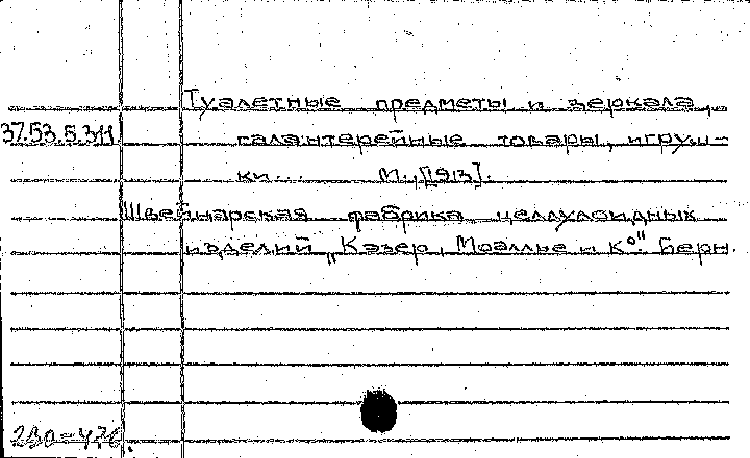 Туалетные предметы и зеркала,
37.53.5.311 галантерейные товары, игруш-
ки... М., [1913].
Швейцарская фабрика целлулоидных
изделий „Кэзер, Моэллье и К°." Берн.